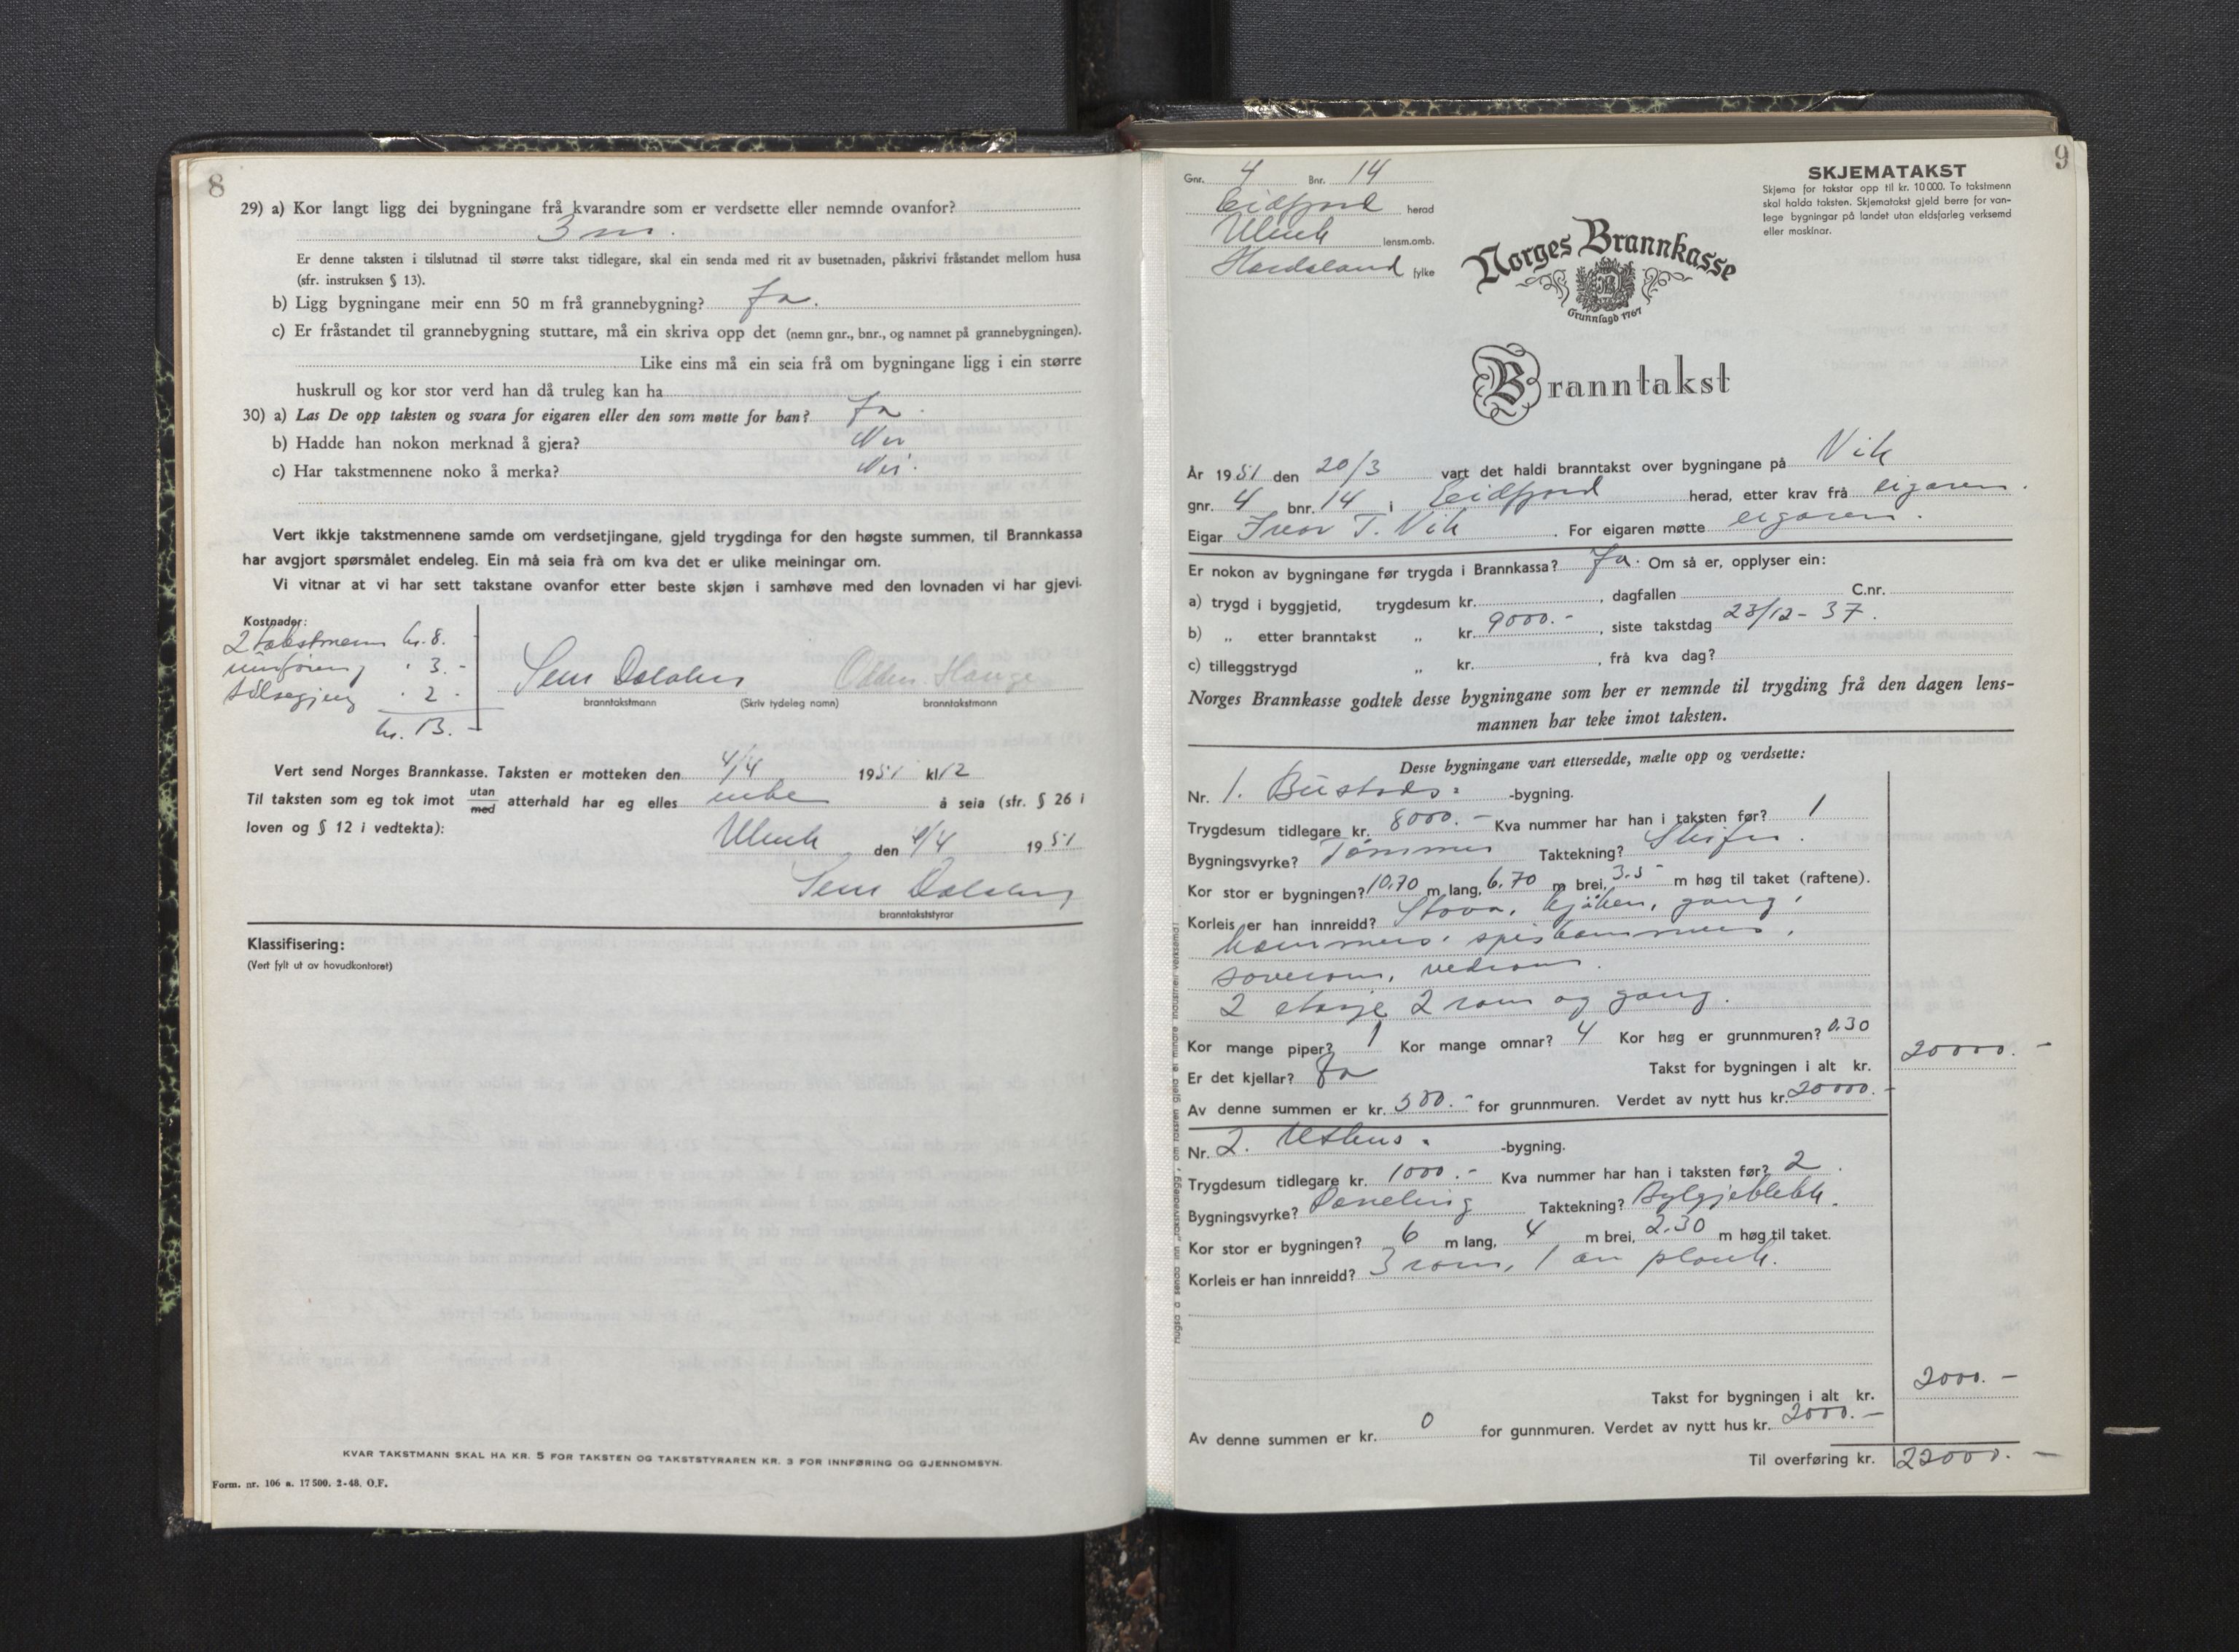 8
29) a) Kor langt ligg dei bygningane frå kvarandre som er verdsette eller nemnde ovanfor?
3 m.
Er denne taksten i tilslutnad til større takst tidlegare, skal ein senda med rit av busetnaden, påskrivi fråstandet mellom husa
(sfr. instruksen § 13).
b) Ligg bygningane meir enn 50 m frå grannebygning? Ja.
c) Er fråstandet til grannebygning stuttare, må ein skriva opp det (nemn gnr., bnr., og namnet på grannebygningen).
Like eins må ein seia frå om bygningane ligg i ein større
huskrull og kor stor verd han då truleg kan ha
30) a) Las De opp taksten og svara for eigaren eller den som møtte for han? Ja.
b) Hadde han nokon merknad å gjera? Nei
c) Har takstmennene noko å merka? Nei.
Vert ikkje takstmennene samde om verdsetjingane, gjeld trygdinga for den høgste summen, til Brannkassa
har avgjort spørsmålet endeleg. Ein må seia frå om kva det er ulike meiningar om.
Vi vitnar at vi har sett takstane ovanfor etter beste skjøn i samhøve med den lovnaden vi har gjevi.
Kostnader:
2 takstmenn kr. 8.
innføring " 3.-
" 2.-
kr. 13.-
Odden Hauge
branntakstmann (Skriv tydeleg namn) branntakstmann
Vert send Norges Brannkasse. Taksten er motteken den 4/4 1951 kl 12
Til taksten som eg tok imot utan/med atterhald har eg elles inkje å seia (sfr. § 26 i
loven og § 12 i vedtekta):
Ulvik den 4/4 1951
branntakststyrar
Klassifisering:
(Vert fylt ut av hovudkontoret)
KVAR TAKSTMANN SKAL HA KR. 5 FOR TAKSTEN OG TAKSTSTYRAREN KR. 3 FOR INNFØRING OG GJENNOMSYN.
Form. nr. 106 a. 17 500. 2-48. O.F.
9
Gnr. 4 Bnr. 14
Eidfjord herad
Ulvik lensm.omb.
Hordaland fylke
SKJEMATAKST
Skjema for takstar opp til kr. 10 000. To takstmenn
skal halda taksten. Skjematakst gjeld berre for van-
lege bygningar på landet utan eldsfarleg verksemd
eller maskinar.
Norges Brannkasse
Grunnlagd 1767
Branntakst
År 1951 den 20/3 vart det haldi branntakst over bygningane på Vik
gnr. 4 bnr. 14 i Eidfjord herad, etter krav frå eigaren.
Eigar Ivar T. Vik. For eigaren møtte eigaren.
Er nokon av bygningane før trygda i Brannkassa? Ja. Om så er, opplyser ein:
a) trygd i byggjetid, trygdesum kr. , dagfallen C.nr.
b) „ etter branntakst „ kr. 9000.- , siste takstdag 23/12-37.
c) tilleggstrygd „ kr. , frå kva dag?
Norges Brannkasse godtek desse bygningane som her er nemnde til trygding frå den dagen lens-
mannen har teke imot taksten.
Desse bygningane vart ettersedde, mælte opp og verdsette:
Nr. 1. Bustads- -bygning.
Trygdesum tidlegare kr. 8000.- Kva nummer har han i taksten før? 1
Bygningsvyrke? Tømmer Taktekning? Skifer.
Kor stor er bygningen? 10.70 m lang, 6.70 m brei, 3.5 m høg til taket (raftene).
Korleis er han innreidd? Stova, kjøken, gang,
kammers, spiskammers,
soverom, vedrom.
2 etasje 2 rom og gang.
Kor mange piper? 1 Kor mange omnar? 4 Kor høg er grunnmuren? 0.30
Er det kjellar? Ja Takst for bygningen i alt kr. 20000.-
Av denne summen er kr. 500.- for grunnmuren. Verdet av nytt hus kr. 20000.-
Nr. 2. Uthus- -bygning.
Trygdesum tidlegare kr. 1000.- Kva nummer har han i taksten før? 2.
Bygningsvyrke? Paneling Taktekning? Bylgjeblekk.
Kor stor er bygningen? 6 m lang, 4 m brei, 2.30 m høg til taket.
Korleis er han innreidd? 3 rom, 1 av plank.
Takst for bygningen i alt kr. 2000.-
Av denne summen er kr. 0 for gunnmuren. Verdet av nytt hus kr. 2000.-
Til overføring kr. 22000.-